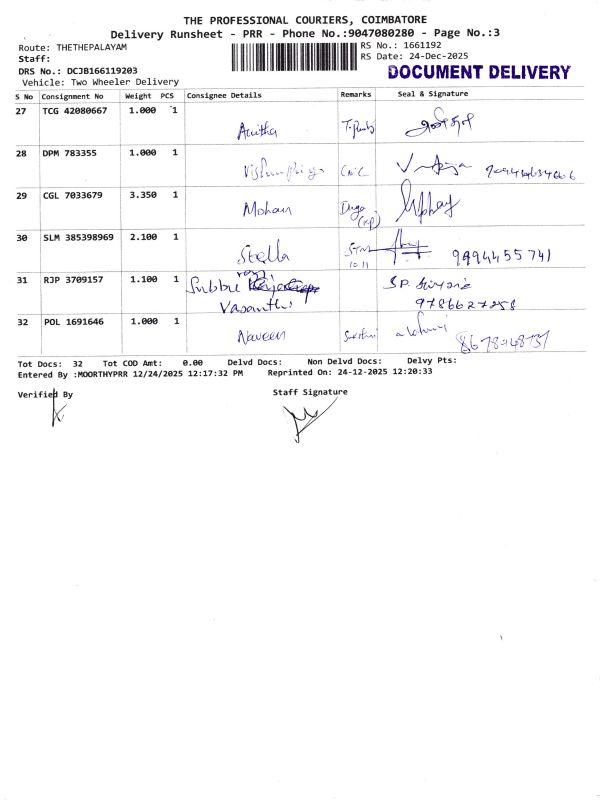 THE PROFESSIONAL COURIERS, COIMBATORE
Delivery Runsheet - PRR - Phone No.:9047080280 - Page No.:3
Route: THETHEPALAYAM
RS No.: 1661192
Staff:
RS Date: 24-Dec-2025
DRS No.: DCJB166119203
DOCUMENT DELIVERY
Vehicle: Two Wheeler Delivery
S No Consignment No Weight PCS Consignee Details Remarks Seal & Signature
27 TCG 42080667 1.000 1
Anitha
28 DPM 783355 1.000 1
29 CGL 7033679 3.350 1
Mohan
30 SLM 385398969 2.100 1
Stella 9994455741
31 RJP 3709157 1.100 1
Vasanthi 9786627258
32 POL 1691646 1.000 1
Naveen
Tot Docs: 32 Tot COD Amt: 0.00 Delvd Docs: Non Delvd Docs: Delvy Pts:
Entered By :MOORTHYPRR 12/24/2025 12:17:32 PM Reprinted On: 24-12-2025 12:20:33
Verified By Staff Signature